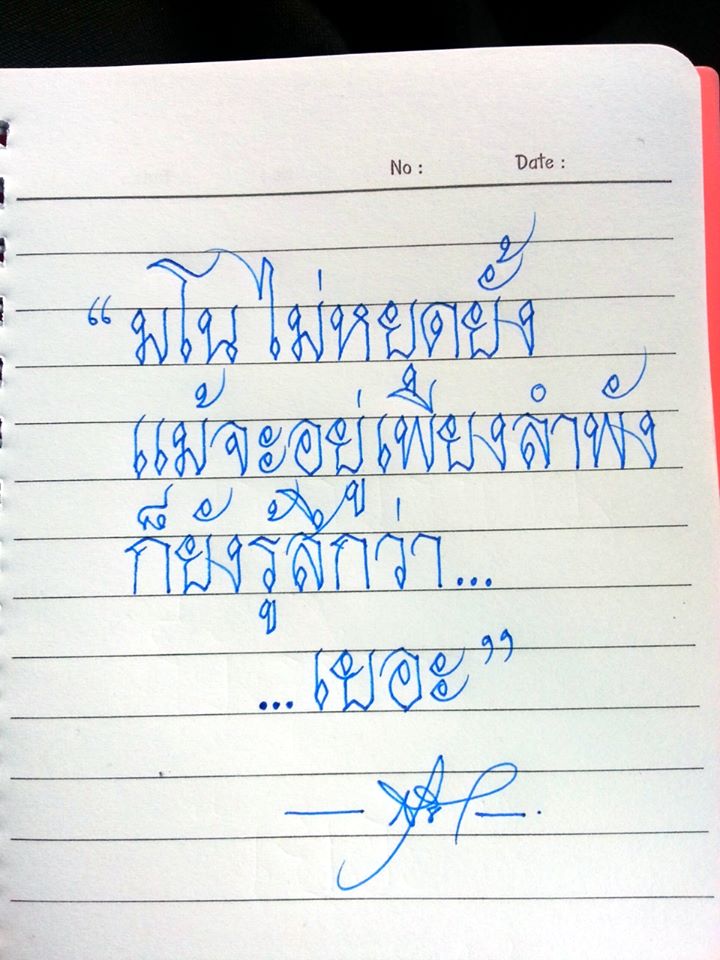 No : Date :
“มโน ไม่หยุดยั้ง
แม้จะอยู่เพียงลำพัง
ก็ยังรู้สึกว่า...
...เยอะ”